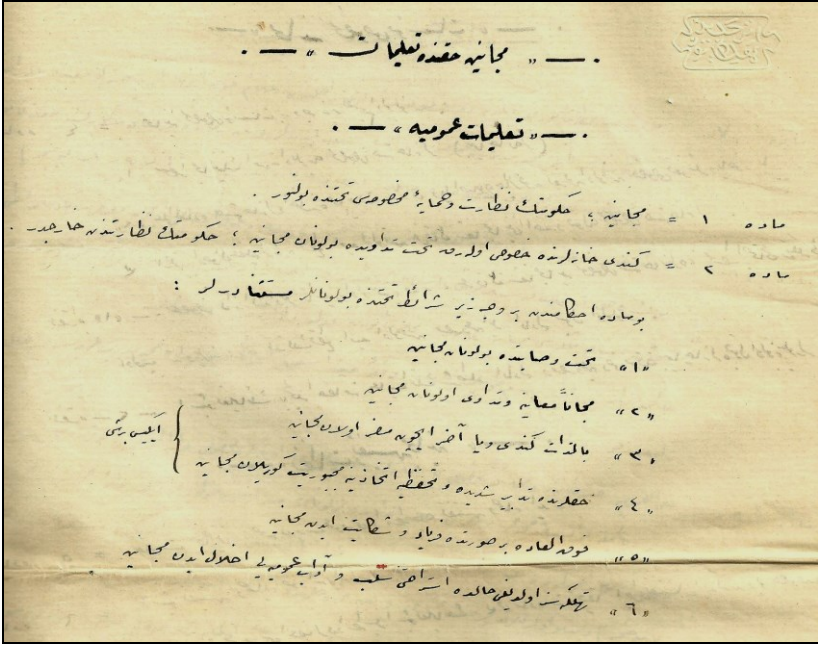 « مجانین حقنده تعلیمات »
« تعلیمات عمومیه »
ماده ١ = مجانین ؛ حكومتك نظارت وحمایهٔ مخصوصه‌سی تحتنده بولنور .
ماده ٢ = كندی خانه‌لرنده خصوصی اوله‌رق تحت تداویده بولونان مجانین ؛ حكومتك نظارتندن خارجدر .
بو ماده احكامندن بر وجه زیر شرائط تحتنده بولونانلر مستثنادرلر :
«١» تحت وصایتده بولونان مجانین
«٢» مجاناً معاینه وتداوی اولونان مجانین
«٣» بالذات كندی ویا آخر ایچون مضر اولان مجانین
«٤» حقلرنده تدابیر شدیده و تحفظیه اتخاذینه مجبوریت كوریلان مجانین
«٥» فوق العاده بر صورتده فریاد و شكایت ایدن مجانین
«٦» تهلكه‌سز اولدیغی حالده استراحتی سلب و آداب عمومیه‌یی اخلال ایدن مجانین .